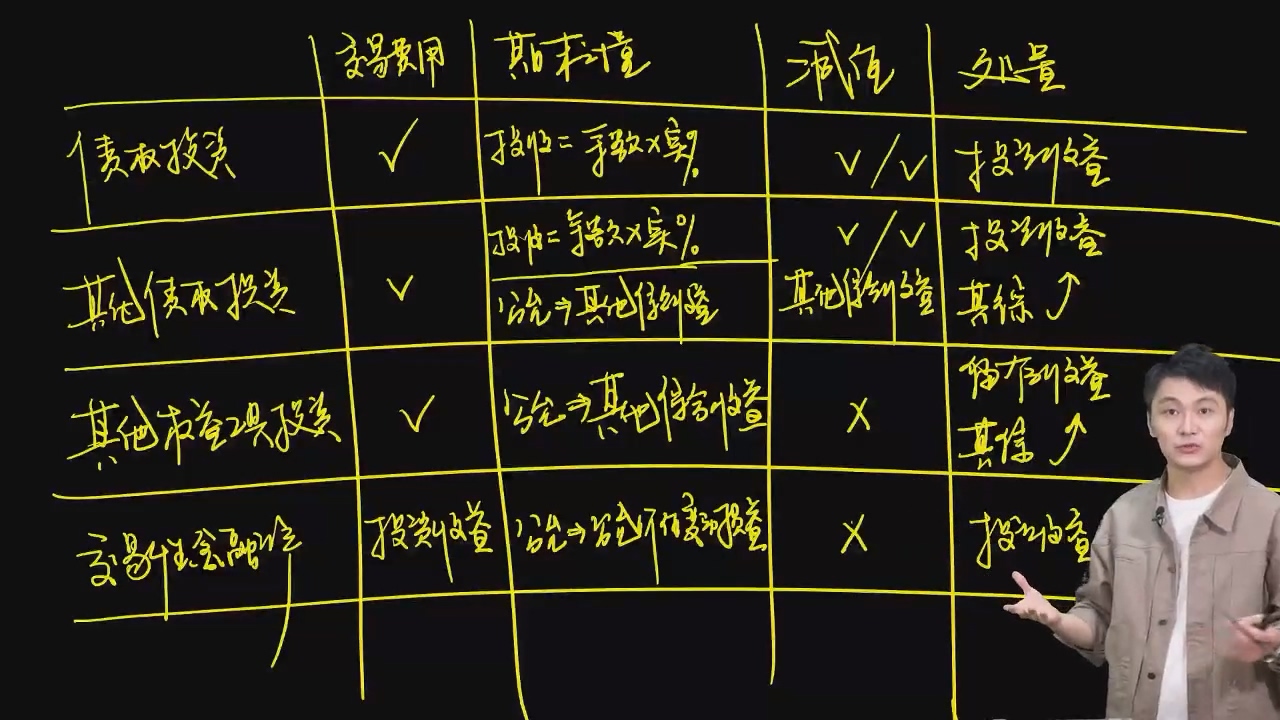 交易费用 期末计量 减值 处置
债权投资 ✓ 投收=手款×实% ✓/✓ 投资收益
投收=手款×实% ✓/✓ 投资收益
其他债权投资 ✓ 公允⇒其他综合收益 其他综合收益 其综↗
其他权益工具投资 ✓ 公允⇒其他综合收益 × 留存收益
其综↗
交易性金融 投资收益 公允⇒公允价值变动损益 × 投资收益